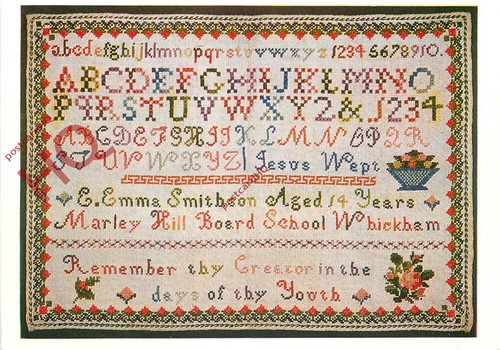 abcdefghijklmnopqrstuvwxyz 12345678910.
ABCDEFGHIJKLMNO
PQRSTUVWXYZ&1234
ABCDEFGHIJKLMNOPQR
STUVWXYZ Jesus Wept
E. Emma Smithson Aged 14 Years
Marley Hill Board School Whickham
Remember thy Creator in the
days of thy Youth